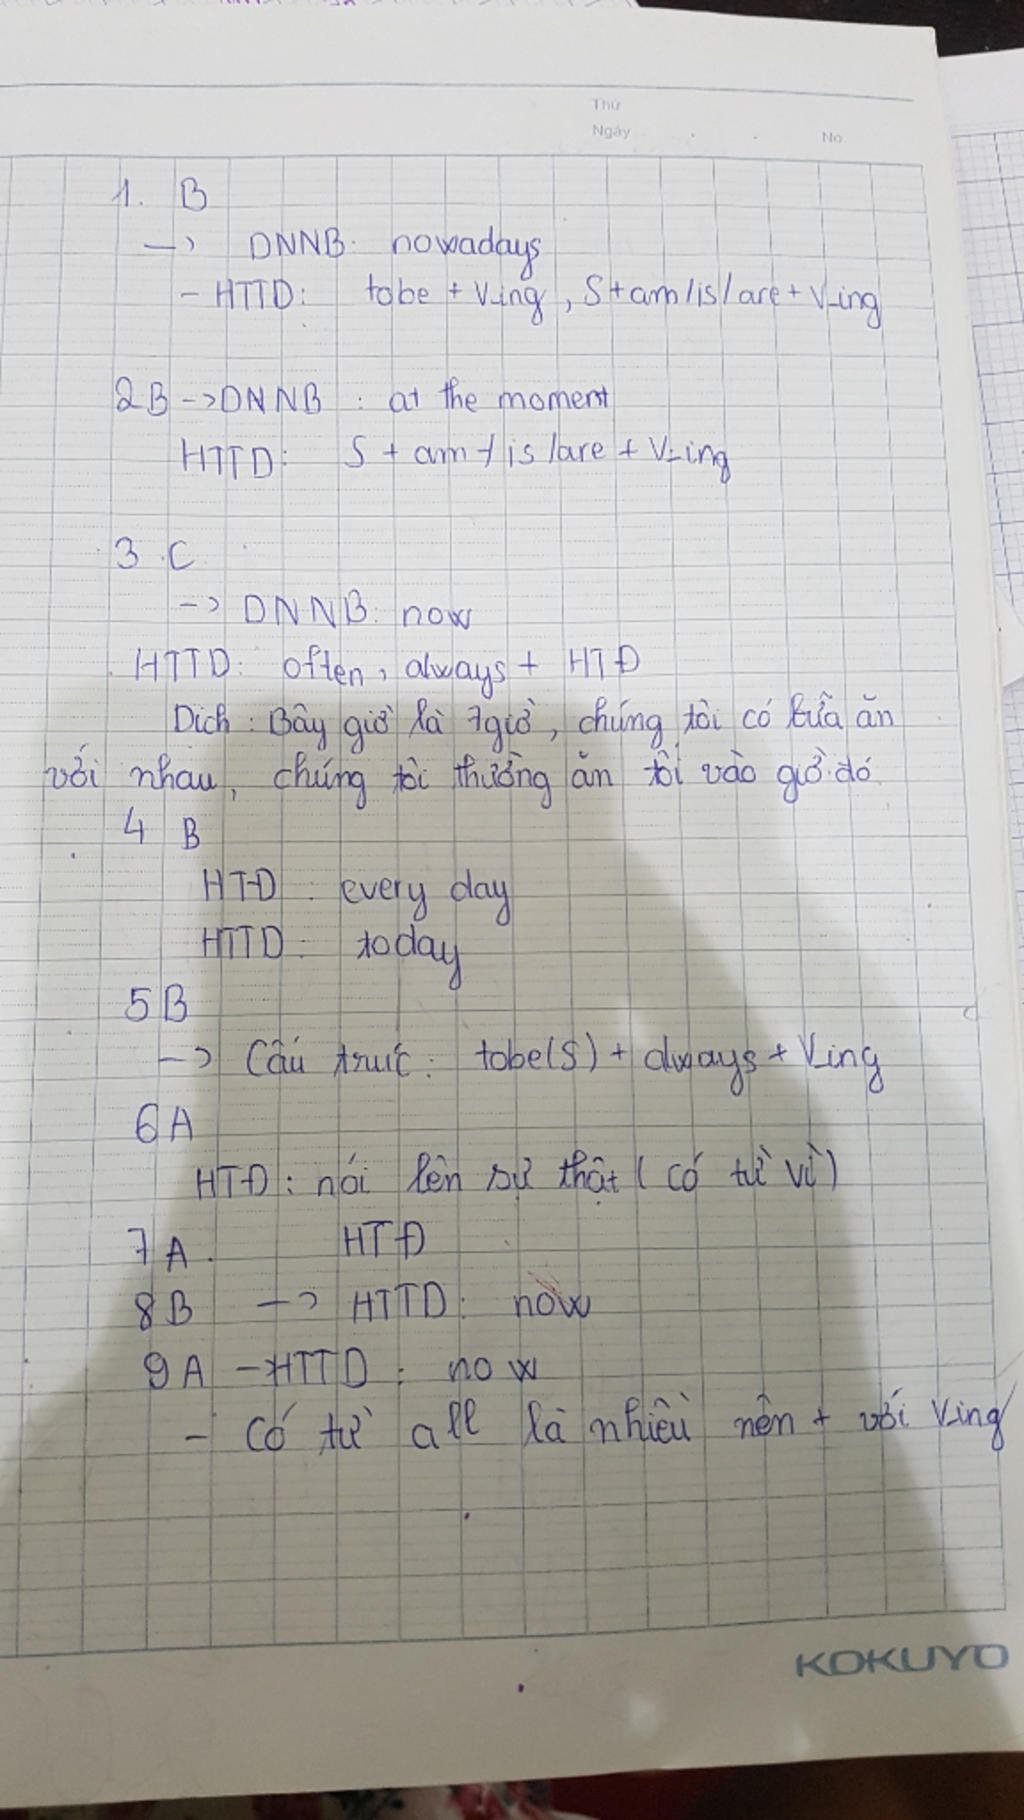 Thứ
Ngày
No.
1. B
-> DNNB: nowadays
- HTTD: tobe + V-ing, S+am/is/are + V-ing
2B -> DNNB: at the moment
HTTD: S + am / is /are + V-ing
3 C
-> DNNB: now
HTTD: often, always + HTĐ
Dịch: Bây giờ là 7giờ, chúng tôi có bữa ăn
với nhau, chúng tôi thường ăn tối vào giờ đó
4 B
HTĐ: every day
HTTD: today
5B
-> Cấu trúc: tobe(S) + always + Ving
6A
HTĐ: nói lên sự thật (có từ vì)
7A. HTĐ
8B -> HTTD: now
9A - HTTD: now
- Có từ all là nhiều nên + với V-ing
KOKUYO